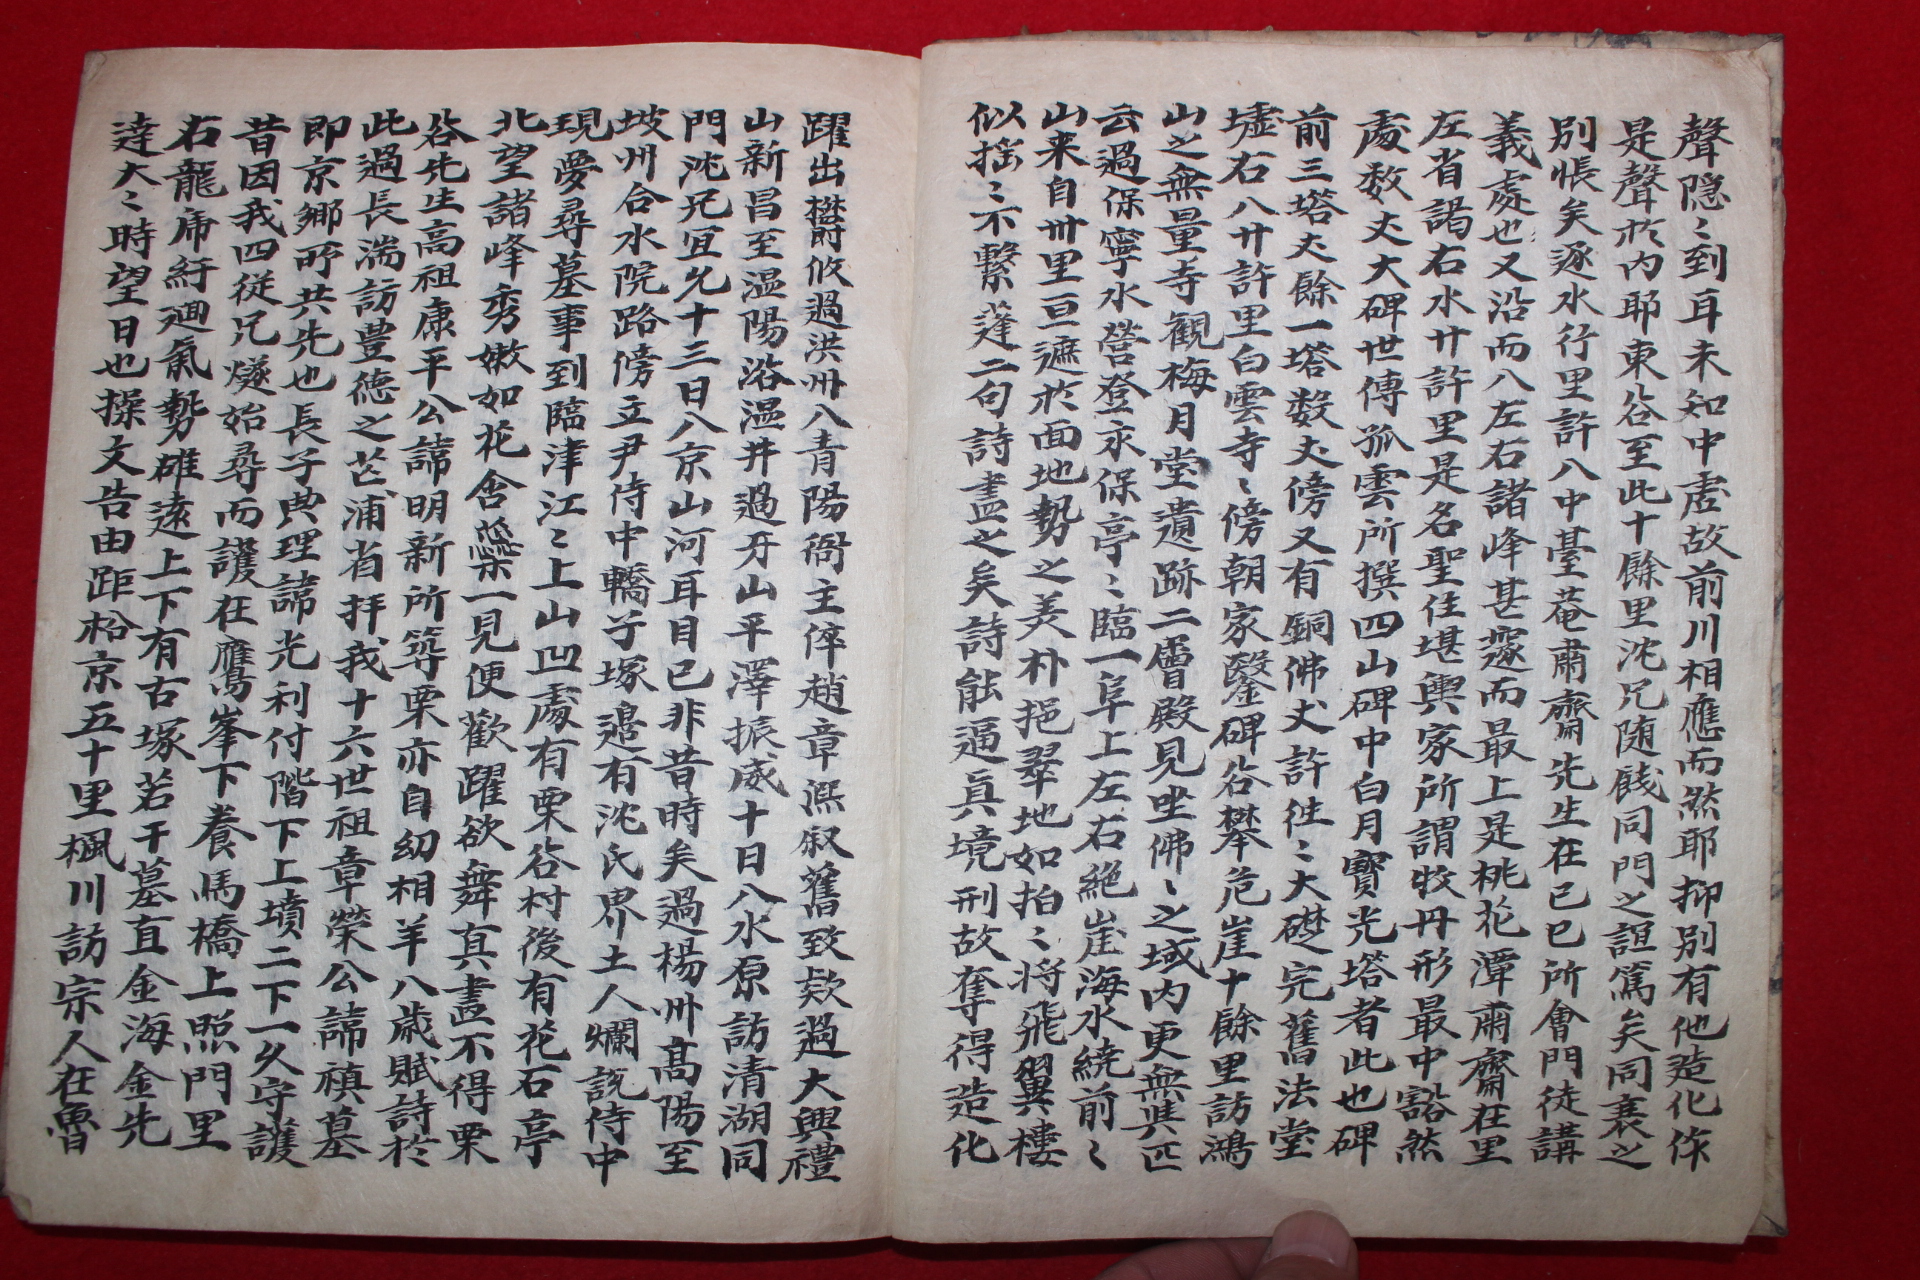 聲隐〻到耳未知中虗故前川相應而然耶抑别有他造化作
是聲於内耶東谷至此十餘里沈兄随餞同門之誼篤矣同裏之
别悵矣逐水行里許八中臺菴肅齋先生在己巳所會門徒講
義處也又沿而八左右諸峰甚邃而最上是桃花潭肅齋在里
左省謁右水廿許里是名聖住堪輿家所謂牧丹形最中豁然
處数丈大碑世傳孤雲所撰四山碑中白月寳光塔者此也碑
前三塔丈餘一塔数丈傍又有銅佛丈許徃〻大礎完舊法堂
墟右八廿許里白雲寺〻傍朝家鑿碑谷攀危崖十餘里訪鴻
山之無量寺觀梅月堂遺跡二層殿見坐佛〻之域内更無其匹
云過保寧水營登永保亭〻臨一阜上左右絶崖海水繞前〻
山来自卅里亘遮於面地勢之美朴挹翠地如拍〻将飛翼樓
似揺〻不繫蓬二句詩盡之矣詩能逼眞境刑故奪得造化
躍出欝攸過洪州八青陽衙主倅趙章凞叙舊致欵過大興禮
山新昌至温陽浴温井過牙山平澤振威十日八水原訪清湖同
門沈兄宜允十三日八京山河耳目已非昔時矣過楊州高陽至
坡州合水院路傍立尹侍中轎子塚邉有沈氏界土人爛説侍中
現夢尋墓事到臨津江〻上山凹處有栗谷村後有花石亭
北望諸峰秀嫩如花含蘂一見便歡躍欲舞真畫不得栗
谷先生高祖康平公諱明新所築栗亦自幼相羊八歳賦詩於
此過長湍訪豊德之芒浦省拜我十六世祖章榮公諱禛墓
即京鄉所共先也長子典理諱光利付階下上墳二下一久守護
昔因我四從兄燧始尋而護在鷹峯下養馬橋上照門里
右龍庯紆廻氣勢雄遠上下有古塚若干墓直金海金先
達大〻時望日也操文告由距松京五十里楓川訪宗人在魯